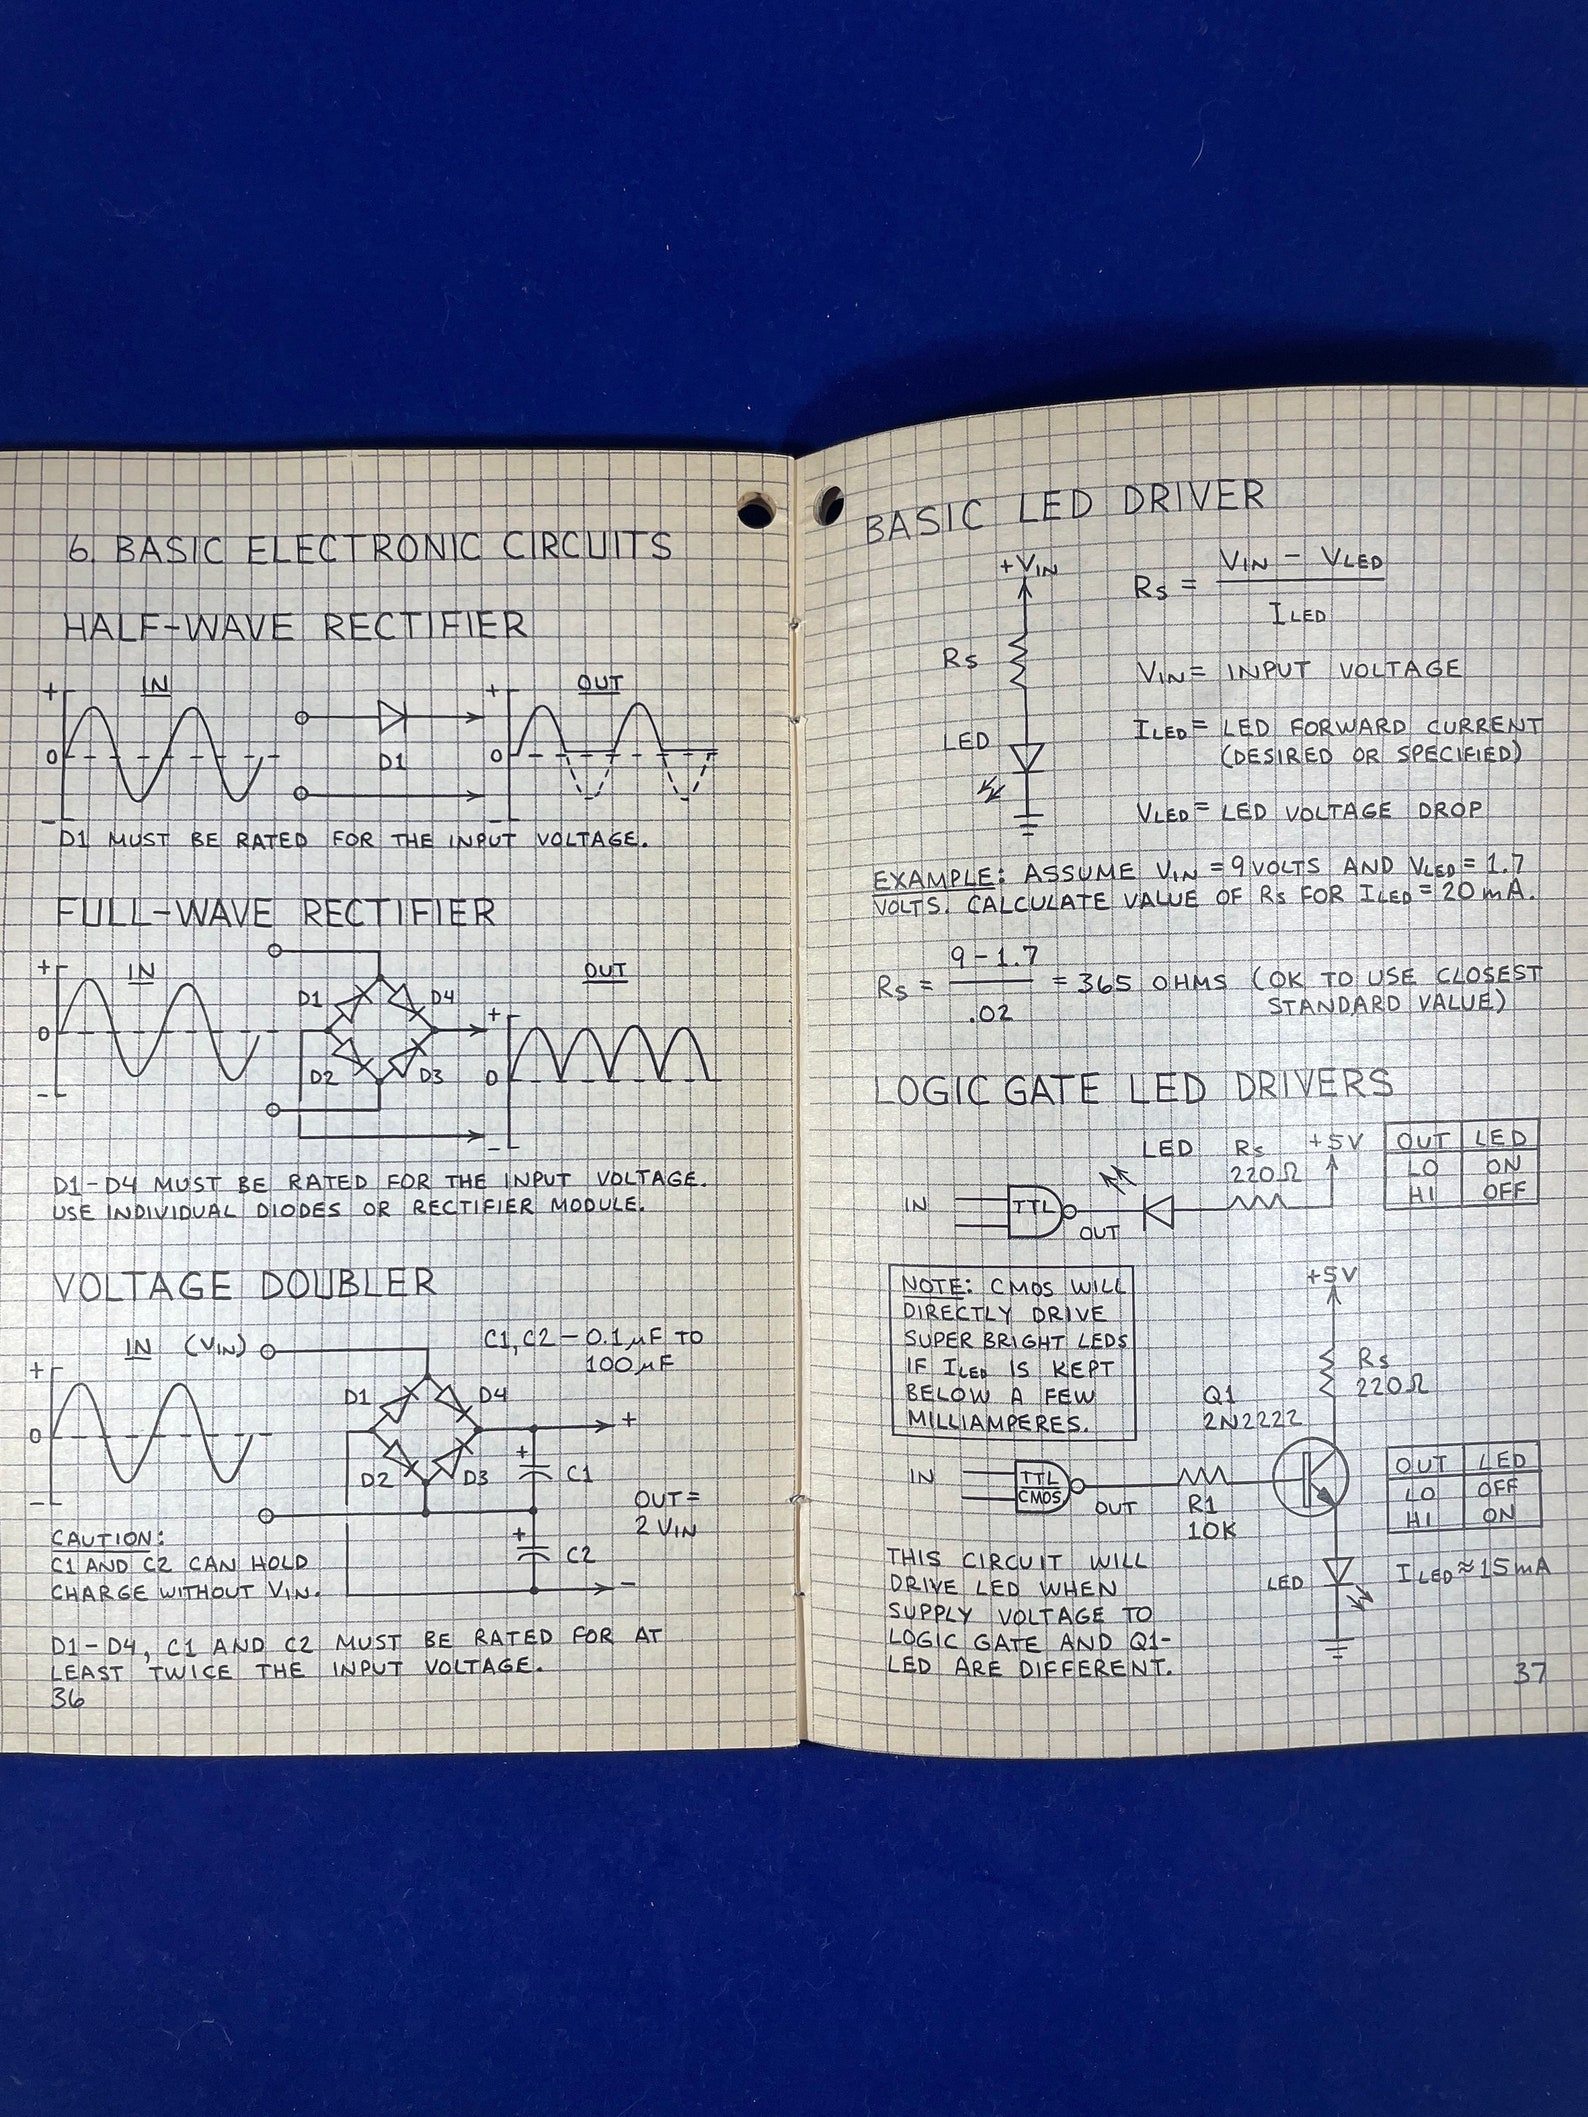 6. BASIC ELECTRONIC CIRCUITS
HALF-WAVE RECTIFIER
IN
OUT
+
0
-
D1
+
0
-
D1 MUST BE RATED FOR THE INPUT VOLTAGE.
FULL-WAVE RECTIFIER
IN
OUT
+
0
-
D1
D4
D2
D3
+
0
-
D1-D4 MUST BE RATED FOR THE INPUT VOLTAGE.
USE INDIVIDUAL DIODES OR RECTIFIER MODULE.
VOLTAGE DOUBLER
IN (VIN)
C1, C2 - 0.1 µF TO
100 µF
+
0
-
D1
D4
D2
D3
+
+
C1
OUT =
2 VIN
+
C2
-
CAUTION:
C1 AND C2 CAN HOLD
CHARGE WITHOUT VIN.
D1-D4, C1 AND C2 MUST BE RATED FOR AT
LEAST TWICE THE INPUT VOLTAGE.
36
BASIC LED DRIVER
+VIN
RS
LED
RS = VIN - VLED
ILED
VIN = INPUT VOLTAGE
ILED = LED FORWARD CURRENT
(DESIRED OR SPECIFIED)
VLED = LED VOLTAGE DROP
EXAMPLE: ASSUME VIN = 9 VOLTS AND VLED = 1.7
VOLTS. CALCULATE VALUE OF RS FOR ILED = 20 mA.
9 - 1.7
RS = = 365 OHMS (OK TO USE CLOSEST
.02 STANDARD VALUE)
LOGIC GATE LED DRIVERS
LED RS +5V
220Ω
IN
TTL
OUT
OUT LED
LO ON
HI OFF
NOTE: CMOS WILL
DIRECTLY DRIVE
SUPER BRIGHT LEDS
IF ILED IS KEPT
BELOW A FEW
MILLIAMPERES.
+5V
RS
220Ω
Q1
2N2222
IN
TTL
CMOS
OUT
R1
10K
OUT LED
LO OFF
HI ON
LED
ILED ≈ 15 mA
THIS CIRCUIT WILL
DRIVE LED WHEN
SUPPLY VOLTAGE TO
LOGIC GATE AND Q1-
LED ARE DIFFERENT.
37